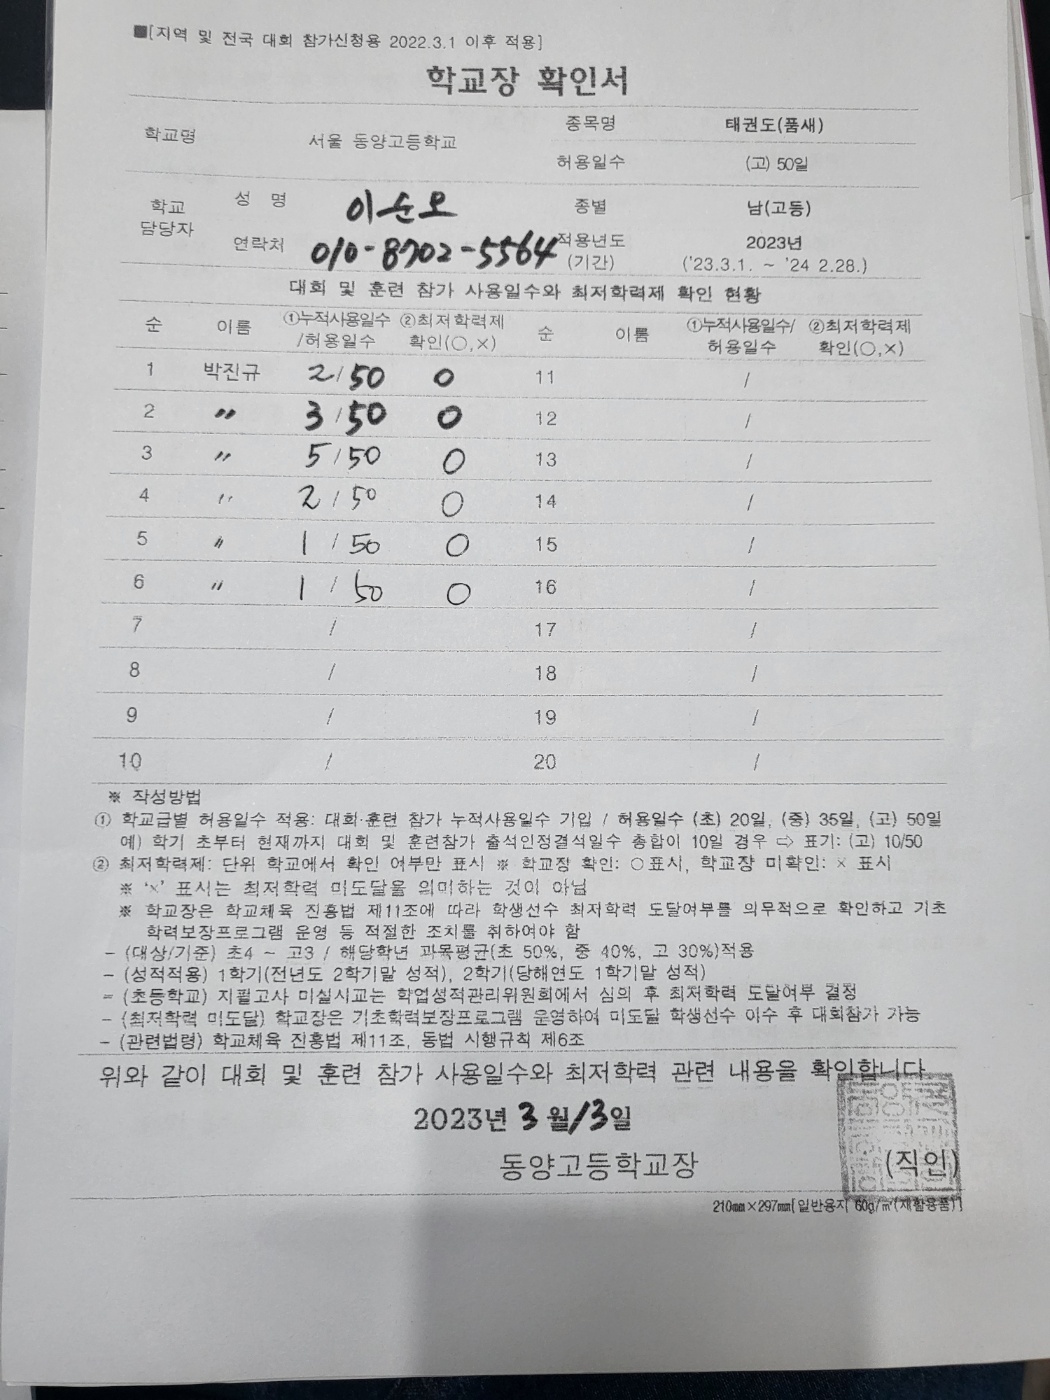 ■[지역 및 전국 대회 참가신청용 2022.3.1 이후 적용]
학교장 확인서
학교명 서울 동양고등학교 종목명 태권도(품새)
허용일수 (고) 50일
학교 담당자 성 명 이순오 종별 남(고등)
연락처 010-8702-5564 적용년도 (기간) 2023년 ('23.3.1. ~ '24 2.28.)
대회 및 훈련 참가 사용일수와 최저학력제 확인 현황
순 이름 ①누적사용일수/허용일수 ②최저학력제 확인(○,×) 순 이름 ①누적사용일수/허용일수 ②최저학력제 확인(○,×)
1 박진규 2/50 ○ 11 /
2 〃 3/50 ○ 12 /
3 〃 5/50 ○ 13 /
4 〃 2/50 ○ 14 /
5 〃 1/50 ○ 15 /
6 〃 1/50 ○ 16 /
7 / 17 /
8 / 18 /
9 / 19 /
10 / 20 /
※ 작성방법
① 학교급별 허용일수 적용: 대회·훈련 참가 누적사용일수 기입 / 허용일수 (초) 20일, (중) 35일, (고) 50일
예) 학기 초부터 현재까지 대회 및 훈련참가 출석인정결석일수 총합이 10일 경우 ⇨ 표기: (고) 10/50
② 최저학력제: 단위 학교에서 확인 여부만 표시 ※ 학교장 확인: ○표시, 학교장 미확인: × 표시
※ '×' 표시는 최저학력 미도달을 의미하는 것이 아님
※ 학교장은 학교체육 진흥법 제11조에 따라 학생선수 최저학력 도달여부를 의무적으로 확인하고 기초
학력보장프로그램 운영 등 적절한 조치를 취하여야 함
- (대상/기준) 초4 ~ 고3 / 해당학년 과목평균(초 50%, 중 40%, 고 30%)적용
- (성적적용) 1학기(전년도 2학기말 성적), 2학기(당해연도 1학기말 성적)
- (초등학교) 지필고사 미실시교는 학업성적관리위원회에서 심의 후 최저학력 도달여부 결정
- (최저학력 미도달) 학교장은 기초학력보장프로그램 운영하여 미도달 학생선수 이수 후 대회참가 가능
- (관련법령) 학교체육 진흥법 제11조, 동법 시행규칙 제6조
위와 같이 대회 및 훈련 참가 사용일수와 최저학력 관련 내용을 확인합니다
2023년 3월 13일
동양고등학교장 (직인)
210㎜×297㎜[일반용지 60g/㎡(재활용품)]